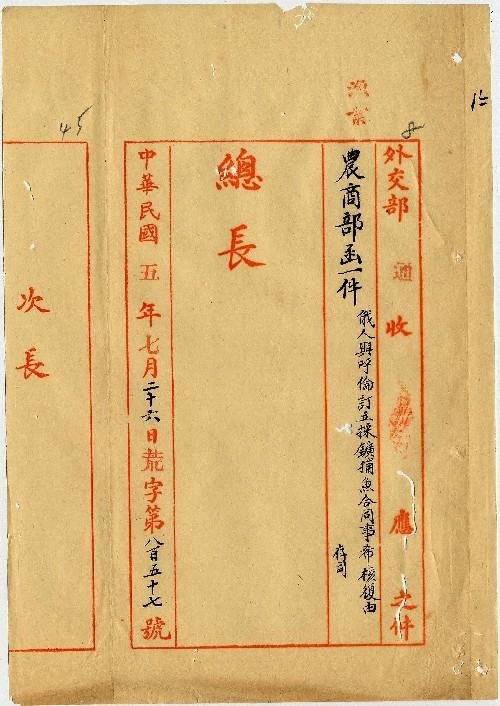 漁業
8
45
外交部 通 收 應 之件
農商部函一件
俄人與呼倫訂立採鑛捕魚合同事希核復由
存司
總長
中華民國五年七月二十六日荒字第八百五十七號
次長